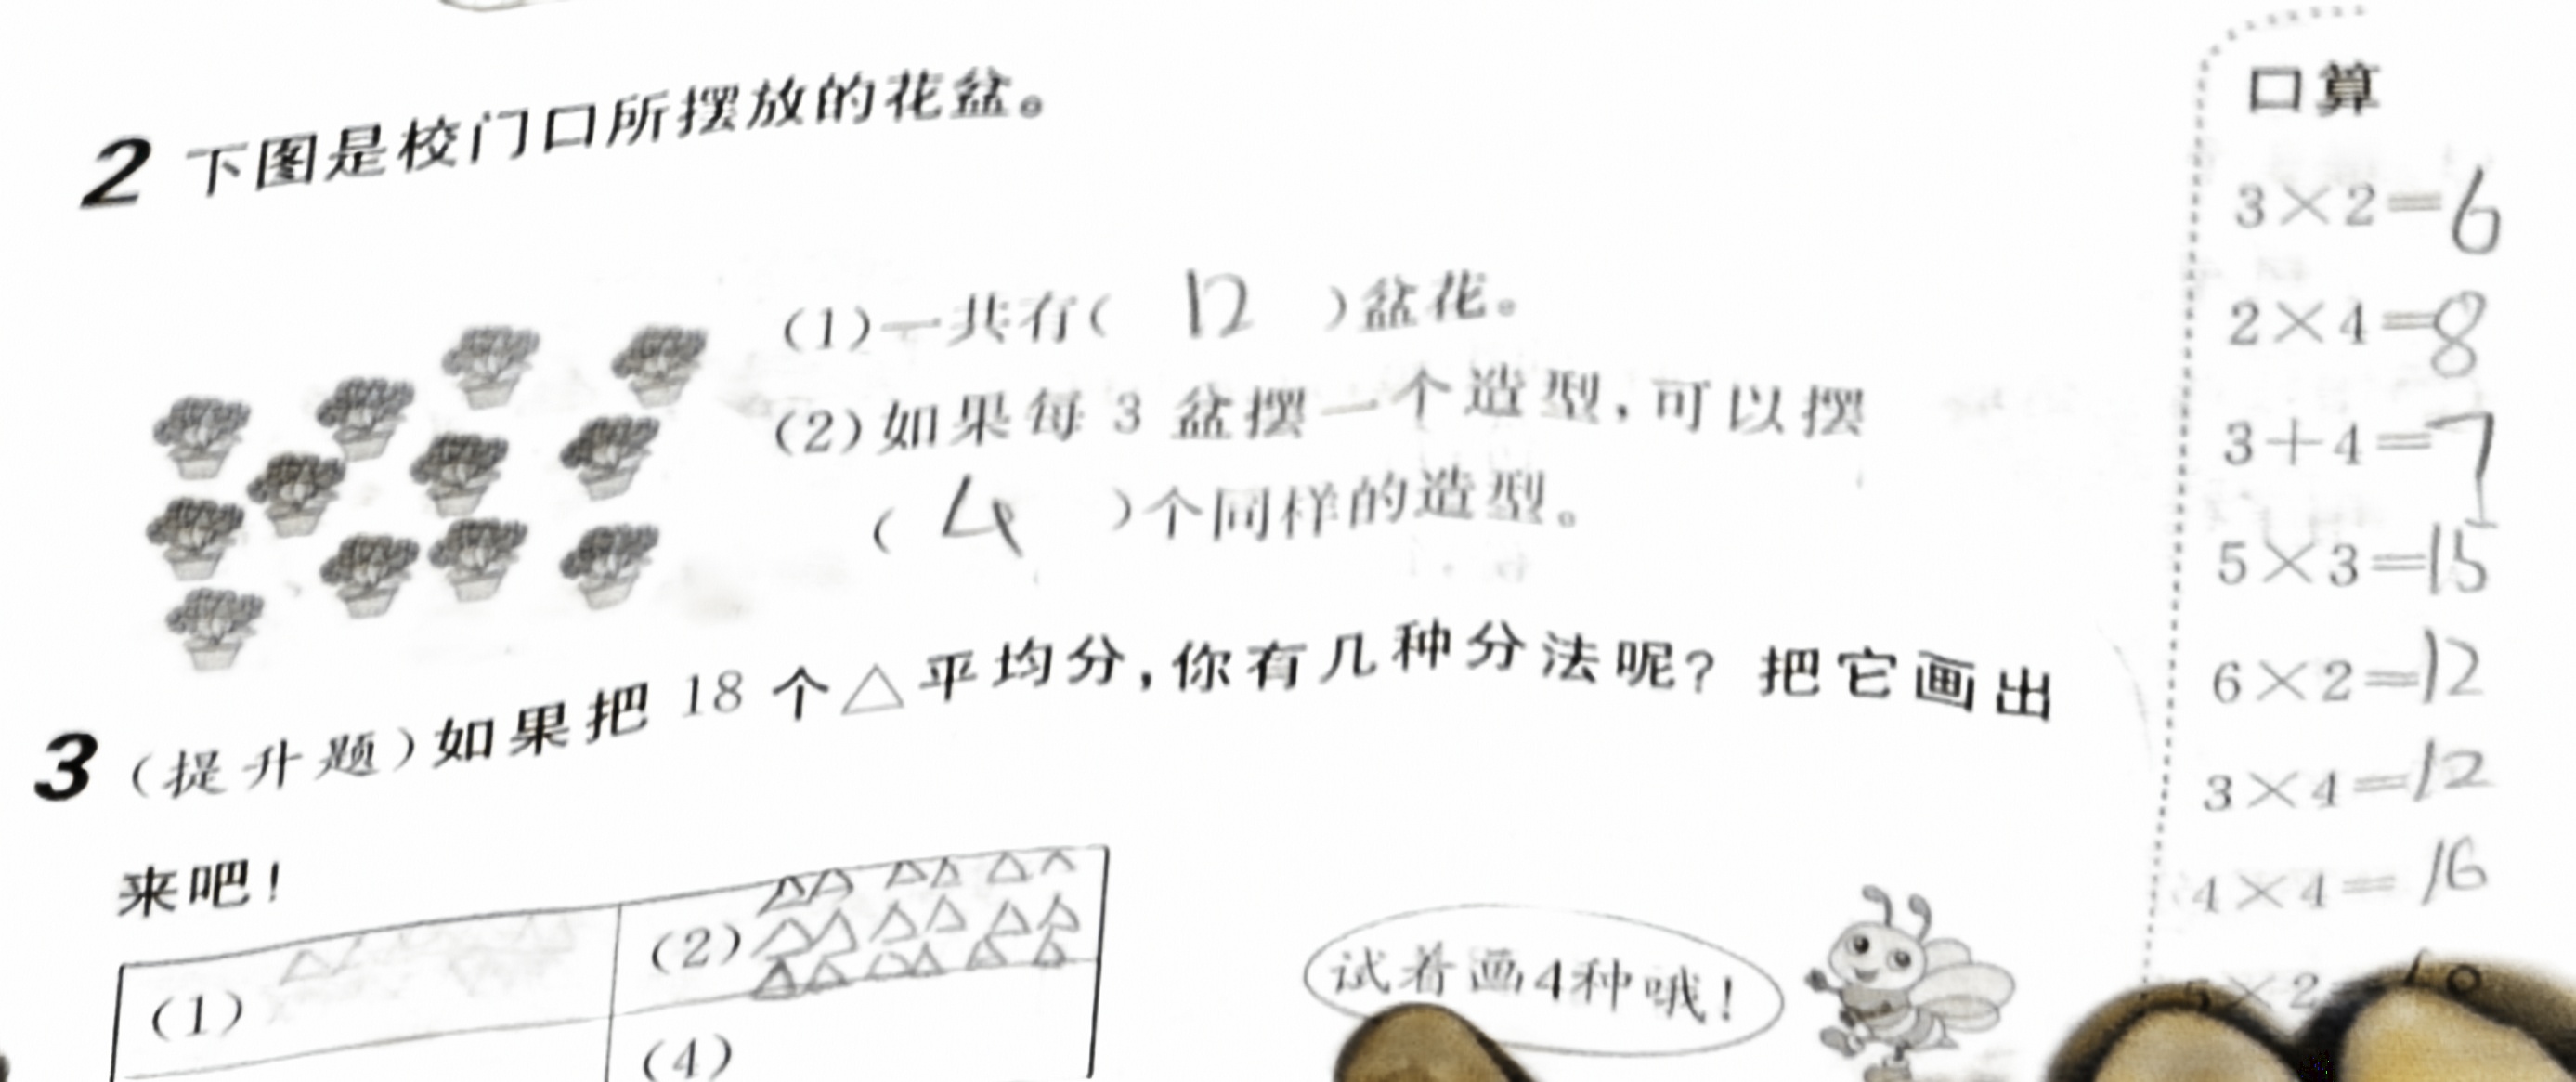 2 下图是校门口所摆放的花盆。
(1)一共有( 12 )盆花。
(2)如果每3盆摆一个造型,可以摆
( 4 )个同样的造型。
3 (提升题)如果把 18 个△平均分,你有几种分法呢? 把它画出
来吧!
(1)
(2)
(4)
试着画4种哦!
口算
3×2=6
2×4=8
3+4=7
5×3=15
6×2=12
3×4=12
4×4=16
5×2 10